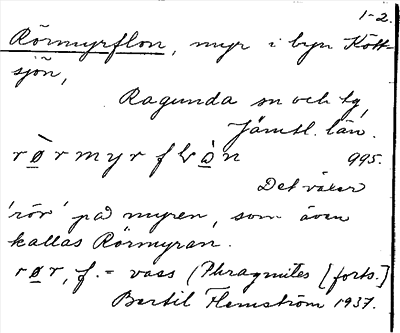 1-2.
Rörmyrflon, myr i byn Kött-
sjön,
Ragunda sn och tg,
Jämtl. län.
rø̀rmyrflὰn 995.
Det växer
'rör' på myren, som även
kallas Rörmyran.
rør, f. = vass (Phragmites [forts.]
Bertil Flemström 1937.